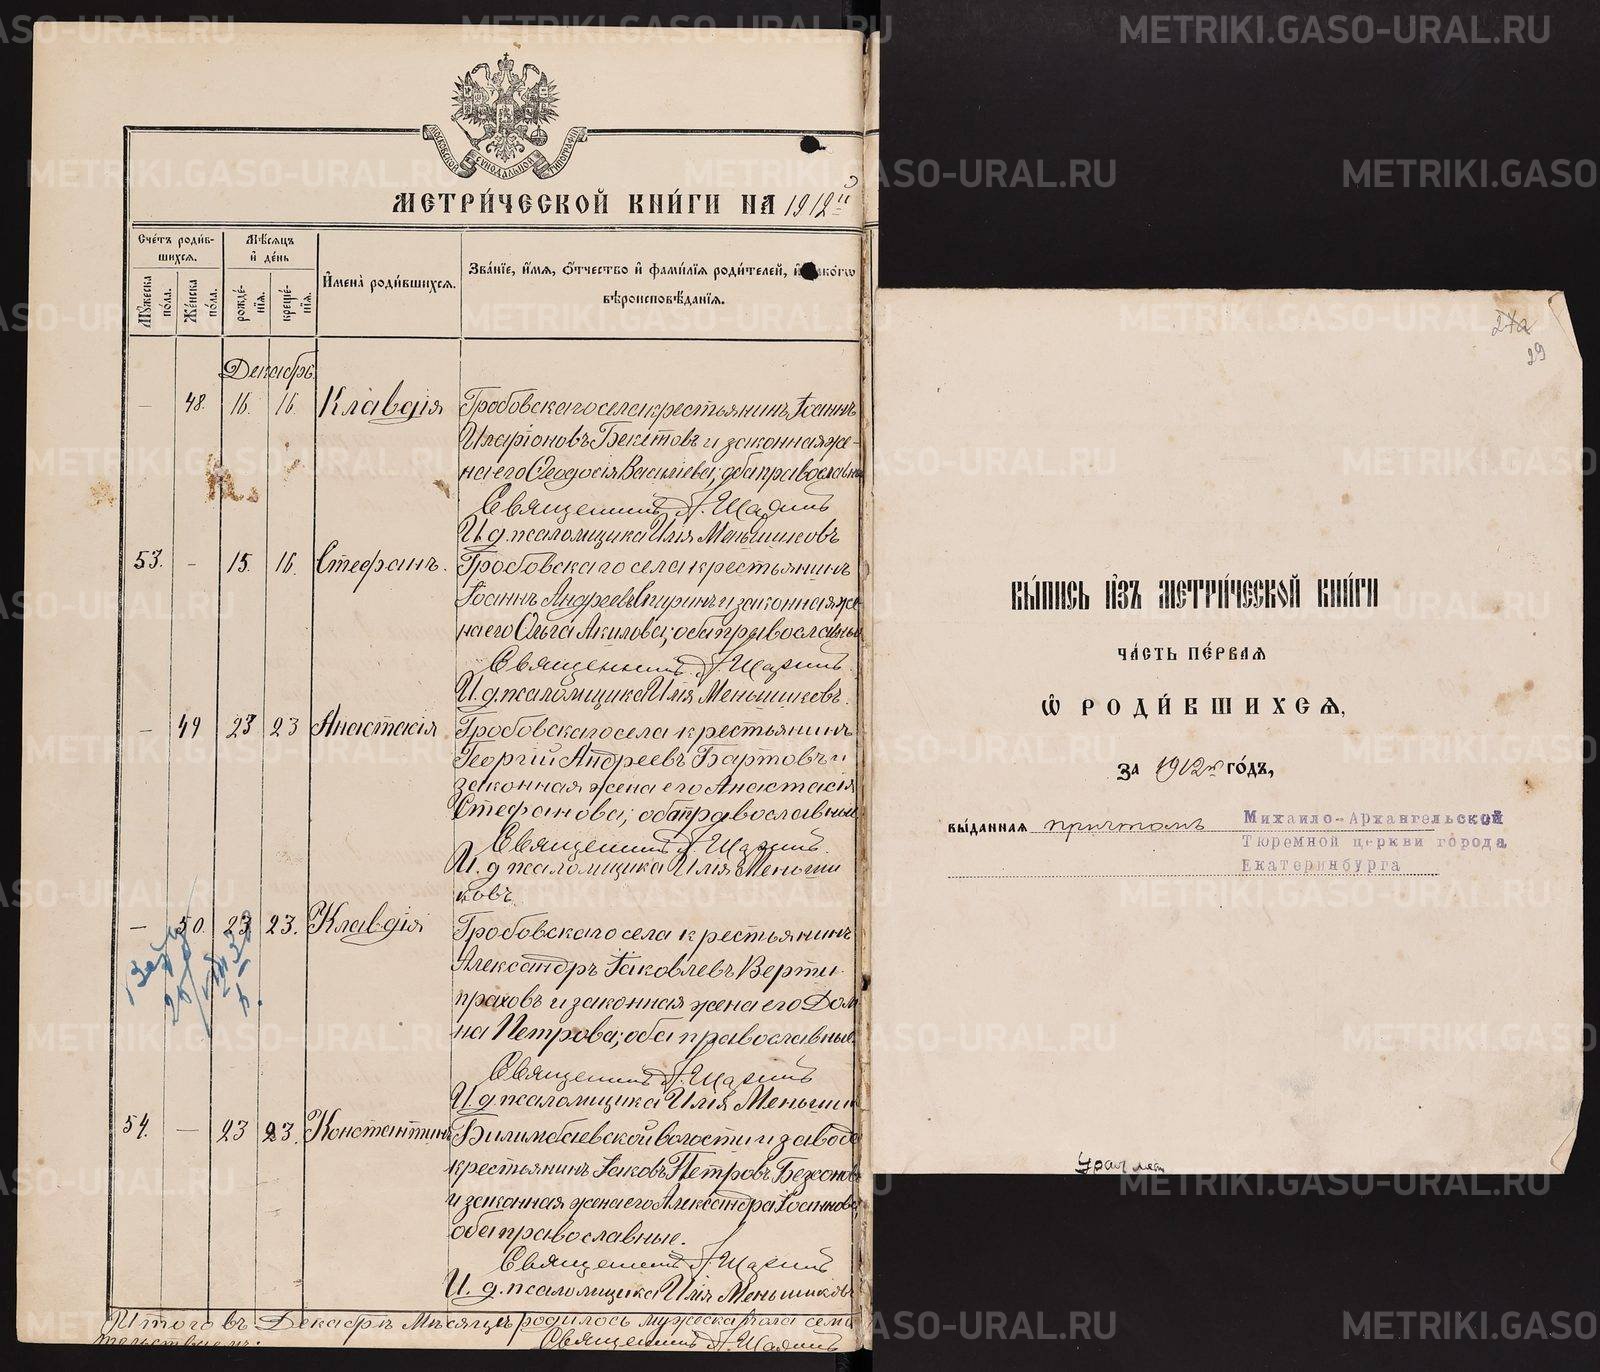 МОСКОВСКОЙ СѴНОДАЛЬНОЙ ТИПОГРАФІИ
МЕТРИ́ЧЕСКОЙ КНИ́ГИ НА 1912й
Сче́тъ роди́вшихся.
Му́жеска по́ла.
Же́нска по́ла.
Мѣ́сяцъ и де́нь
рожде́нія.
креще́нія.
Имена̀ роди́вшихся.
Зва́ніе, и́мя, о́тчество и фами́лія роди́телей, и како́гω
вѣроисповѣ́данія.
Декабрь.
— 48. 16. 16. Клавдія Гробовскаго села крестьянинъ Іоаннъ
Иларіоновъ Бектовъ и законная же-
на его Ѳеодосія Васильева; оба православные
Священникъ А. Шадинъ
И. д. псаломщика Илія Меньшиковъ
53. — 15. 16. Стефанъ. Гробовскаго села крестьянинъ
Іоаннъ Андреевъ и законная же-
на его Ольга Акилова; оба православные
Священникъ А. Шадинъ
И. д. псаломщика Илія Меньшиковъ.
— 49 23 23 Анастасія Гробовскаго села крестьянинъ
Георгій Андреевъ Бартовъ и
законная жена его Анастасія
Стефанова; оба православные
Священникъ А. Шадинъ.
И. д. псаломщика Илія Меньши
ковъ.
— 50. 23 23. Клавдія Гробовскаго села крестьянинъ
Александръ Іаковлевъ Верти-
праховъ и законная жена его Дом
на Петрова; оба православные.
Священникъ А. Шадинъ
И. д. псаломщика Илія Меньшик
54. — 23 23. Константинъ Билимбаевской волости и завода
крестьянинъ Іаковъ Петровъ Безсоновъ
и законная жена его Александра Іоаннова;
оба православные.
Священникъ А. Шадинъ
И. д. псаломщика Илія Меньшиковъ
Итого въ Декабрѣ мѣсяцѣ родилось мужеска пола семь
Священникъ А. Шадинъ
27а
29
ВЫ́ПИСЬ И́ЗЪ МЕТРИ́ЧЕСКОЙ КНИ́ГИ
ЧА́СТЬ ПЕ́РВАЯ
Ѡ РОДИ́ВШИХСЯ,
за 1912й го́дъ,
вы́данная причтомъ Михаило-Архангельской
Тюремной церкви города
Екатеринбурга
METRIKI.GASO-URAL.RU